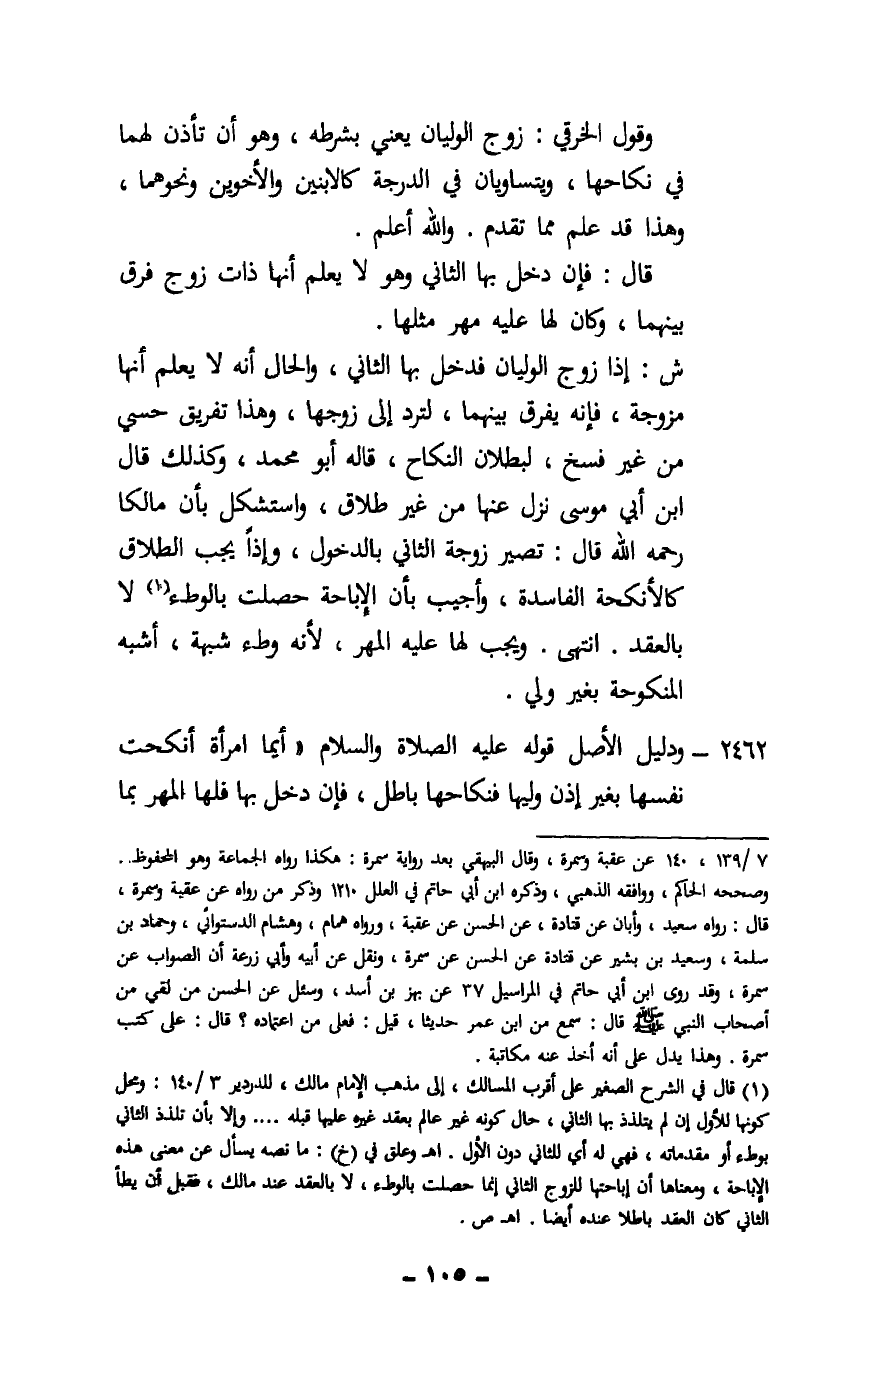 وقول الخرقي : زوج الوليان يعني بشرطه ، وهو أن تأذن لهما
في نكاحها ، ويتساويان في الدرجة كالابنين والأخوين ونحوهما ،
وهذا قد علم مما تقدم . والله أعلم .
قال : فإن دخل بها الثاني وهو لا يعلم أنها ذات زوج فرق
بينهما ، وكان لها عليه مهر مثلها .
ش : إذا زوج الوليان فدخل بها الثاني ، والحال أنه لا يعلم أنها
مزوجة ، فإنه يفرق بينهما ، لترد إلى زوجها ، وهذا تفريق حسي
من غير فسخ ، لبطلان النكاح ، قاله أبو محمد ، وكذلك قال
ابن أبي موسى نزل عنها من غير طلاق ، واستشكل بأن مالكا
رحمه الله قال : تصير زوجة الثاني بالدخول ، وإذاً يجب الطلاق
كالأنكحة الفاسدة ، وأجيب بأن الإباحة حصلت بالوطء(١) لا
بالعقد . انتهى . ويجب لها عليه المهر ، لأنه وطء شبهة ، أشبه
المنكوحة بغير ولي .
٢٤٦٢ – ودليل الأصل قوله عليه الصلاة والسلام « أيما امرأة أنكحت
نفسها بغير إذن وليها فنكاحها باطل ، فإن دخل بها فلها المهر بما
٧ /١٣٩ ، ١٤٠ عن عقبة وسمرة ، وقال البيهقي بعد رواية سمرة : هكذا رواه الجماعة وهو المحفوظ. .
وصححه الحاكم ، ووافقه الذهبي ، وذكره ابن أبي حاتم في العلل ١٢١٠ وذكر من رواه عن عقبة وسمرة ،
قال : رواه سعيد ، وأبان عن قتادة ، عن الحسن عن عقبة ، ورواه همام ، وهشام الدستوائي ، وحماد بن
سلمة ، وسعيد بن بشير عن قتادة عن الحسن عن سمرة ، ونقل عن أبيه وأبي زرعة أن الصواب عن
سمرة ، وقد روى ابن أبي حاتم في المراسيل ٣٧ عن بهز بن أسد ، وسئل عن الحسن من لقي من
أصحاب النبي ﷺ قال : سمع من ابن عمر حديثا ، قيل : فعلى من اعتماده ؟ قال : على كتب
سمرة . وهذا يدل على أنه أخذ عنه مكاتبة .
(١) قال في الشرح الصغير على أقرب المسالك ، إلى مذهب الإمام مالك ، للدردير ٣ /١٤٠ : ومحل
كونها للأول إن لم يتلذذ بها الثاني ، حال كونه غير عالم بعقد غيره عليها قبله .... وإلا بأن تلذذ الثاني
بوطء أو مقدماته ، فهي له أي للثاني دون الأول . اهـ وعلق في (خ) : ما نصه يسأل عن معنى هذه
الإباحة ، ومعناها أن إباحتها للزوج الثاني إنما حصلت بالوطء ، لا بالعقد عند مالك ، فقبل أن يطأ
الثاني كان العقد باطلا عنده أيضا . اهـ ص .
– ١٠٥ –